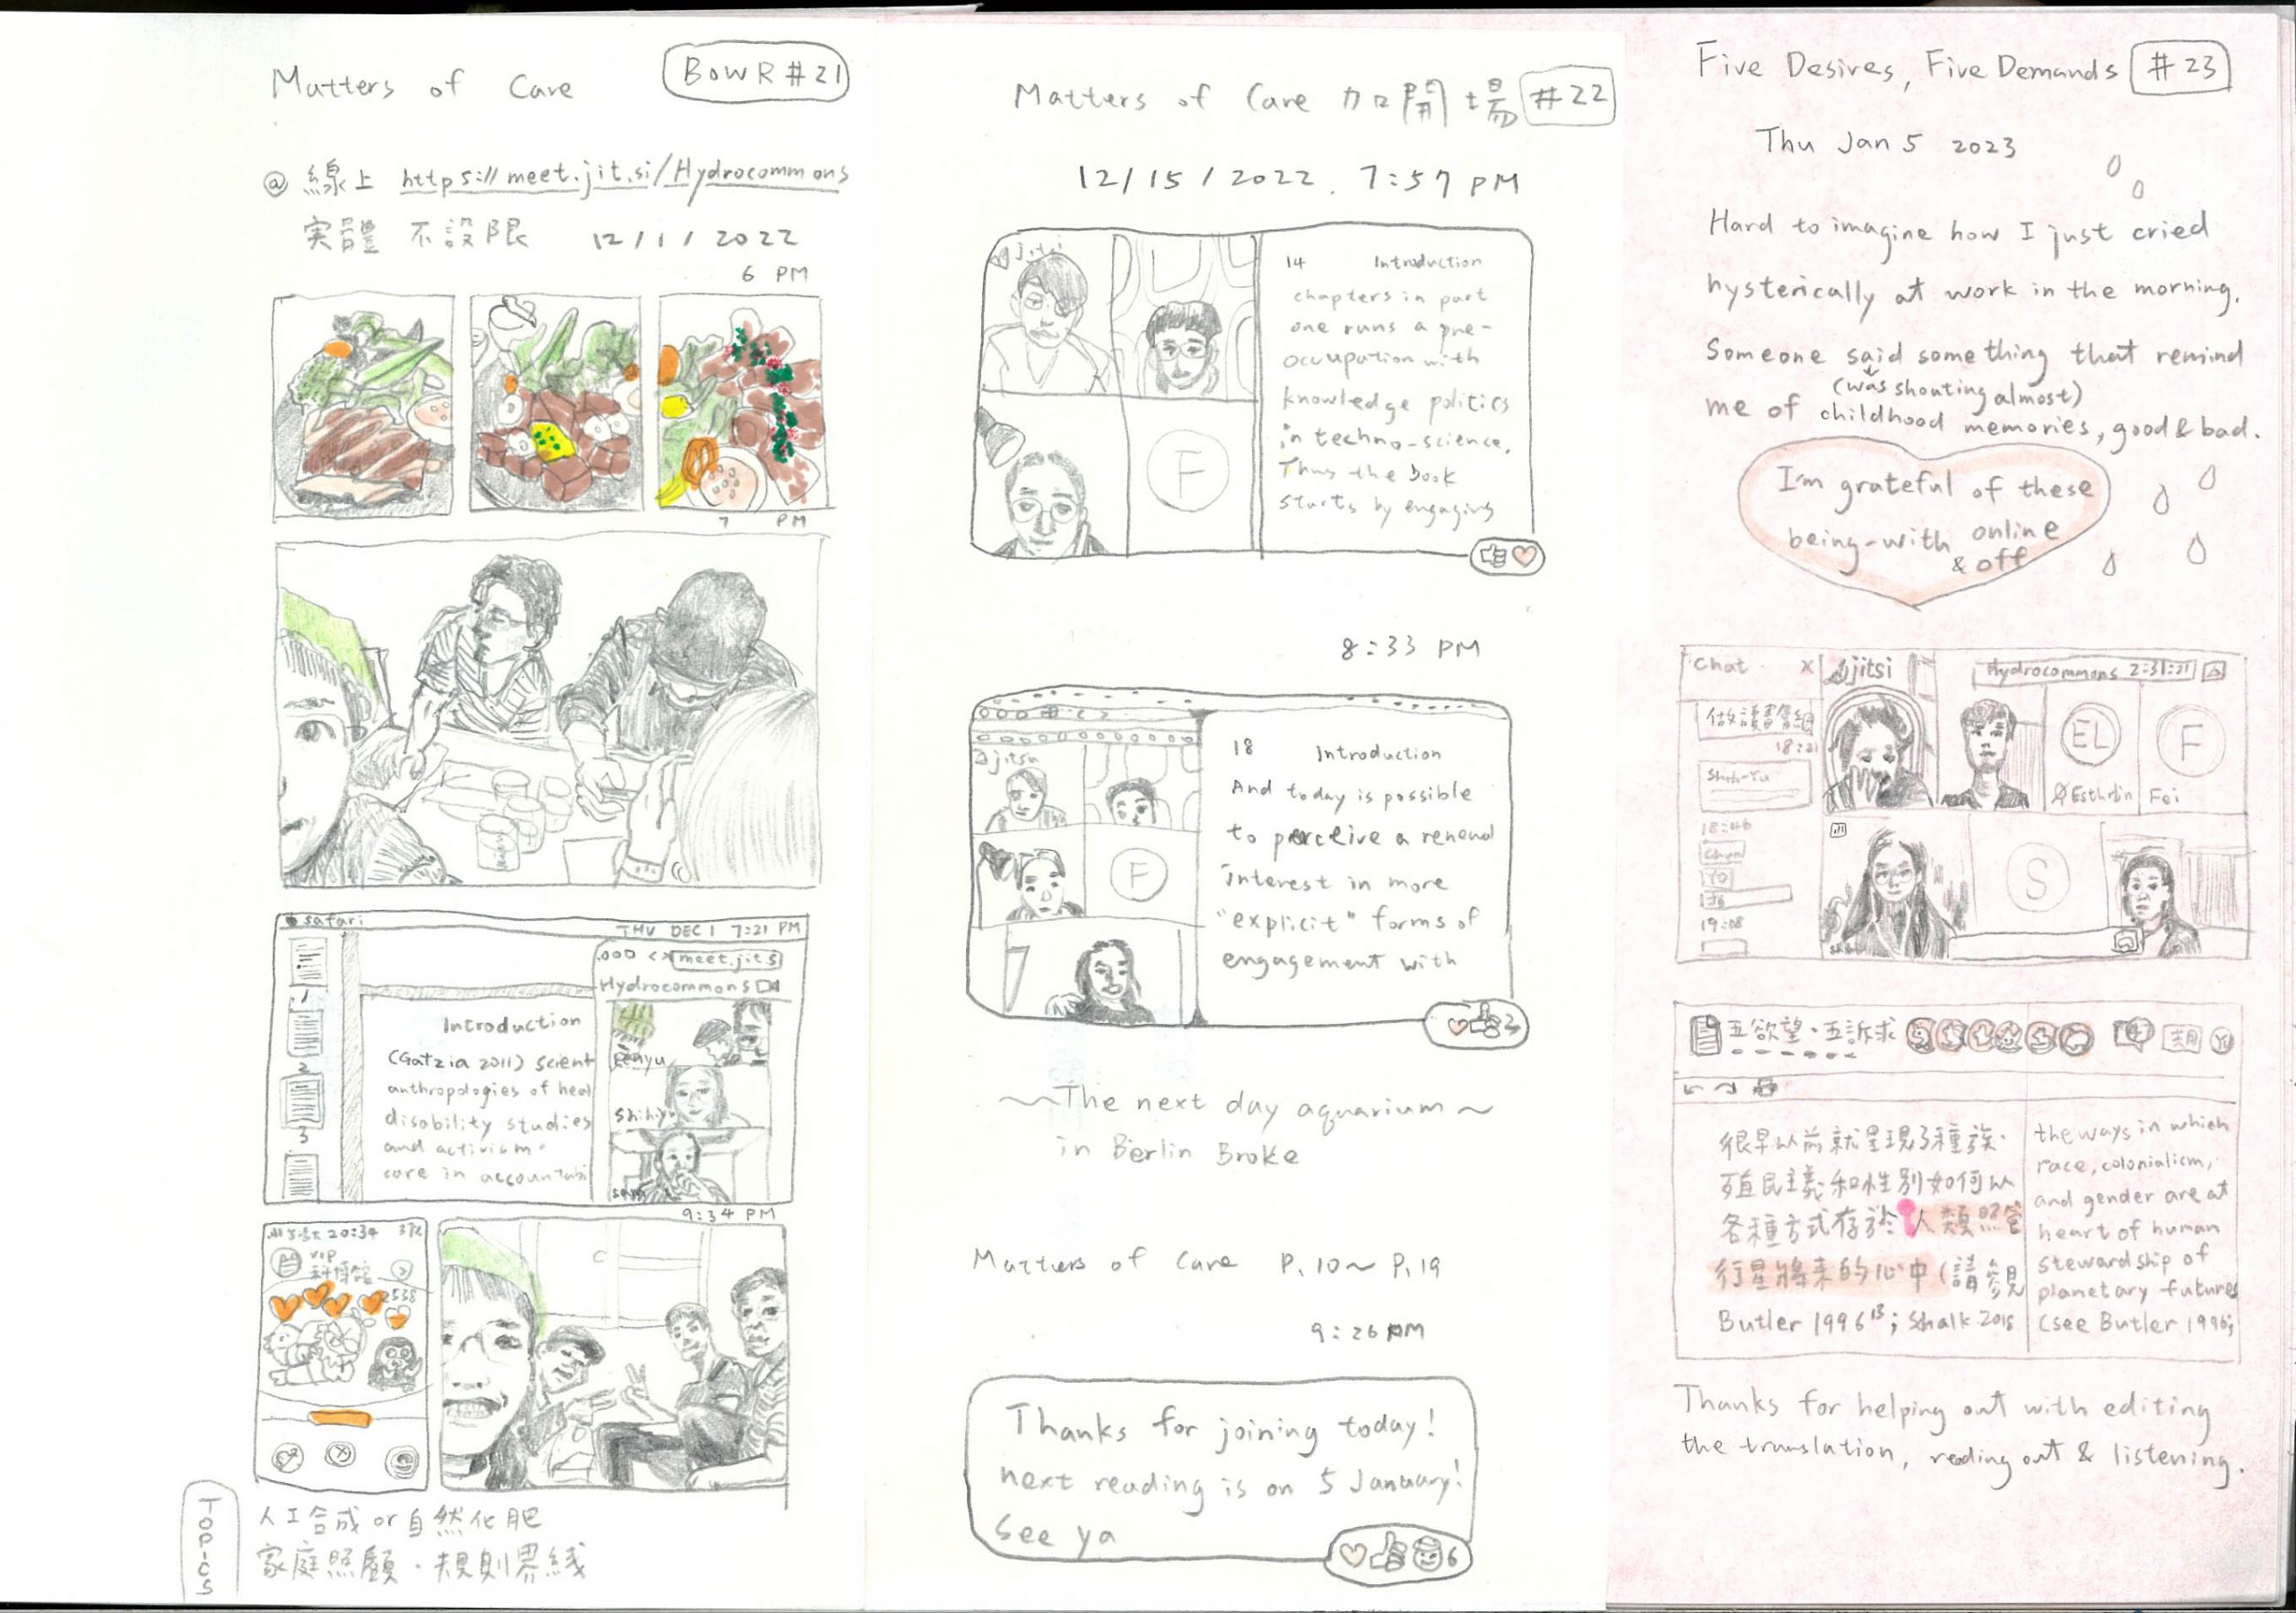 Matters of Care
BOWR #21
@ 線上 https://meet.jit.si/Hydrocommons
実體 不設限 12/1/2022
6 PM
7 PM
safari
THU DEC 1 7:21 PM
meet.jit.s
Hydrocommons
1
2
3
Introduction
(Gatzia 2011) scient
anthropologies of heal
disability studies
and activism.
care in accountabi
Penyu
Shihyu
sam
9:34 PM
20:34
VIP
科博館
2538
TOPICS
人工合成 or 自然化肥
家庭照顧・規則界綫
Matters of Care 加開場 #22
12/15/2022. 7:57 PM
jitsi
F
14 Introduction
chapters in part
one runs a pre-
occupation with
knowledge politics
in techno-science.
Thus the book
starts by engaging
8:33 PM
jitsi
F
18 Introduction
And today is possible
to perceive a renewd
interest in more
"explicit" forms of
engagement with
3
~The next day aquarium~
in Berlin Broke
Matters of Care P.10~P.19
9:26 PM
Thanks for joining today!
next reading is on 5 January!
See ya
6
Five Desires, Five Demands #23
Thu Jan 5 2023
Hard to imagine how I just cried
hysterically at work in the morning.
Someone said something that remind
(was shouting almost)
me of childhood memories, good & bad.
I'm grateful of these
being-with online
& off
Chat X
做讀書會
18:21
Shih-Yu
18:46
Chun
YO
19:08
jitsi
Hydrocommons 2:31:21
EL
F
Fei
S
五欲望・五訴求
很早以前就呈現了種族・
殖民主義和性別如何以
各種方式存於人類照管
行星將来的心中（請參見
Butler 1996¹³; Schalk 2018
the ways in which
race, colonialism,
and gender are at
heart of human
stewardship of
planetary futures
(see Butler 1996;
Thanks for helping out with editing
the translation, reading out & listening.